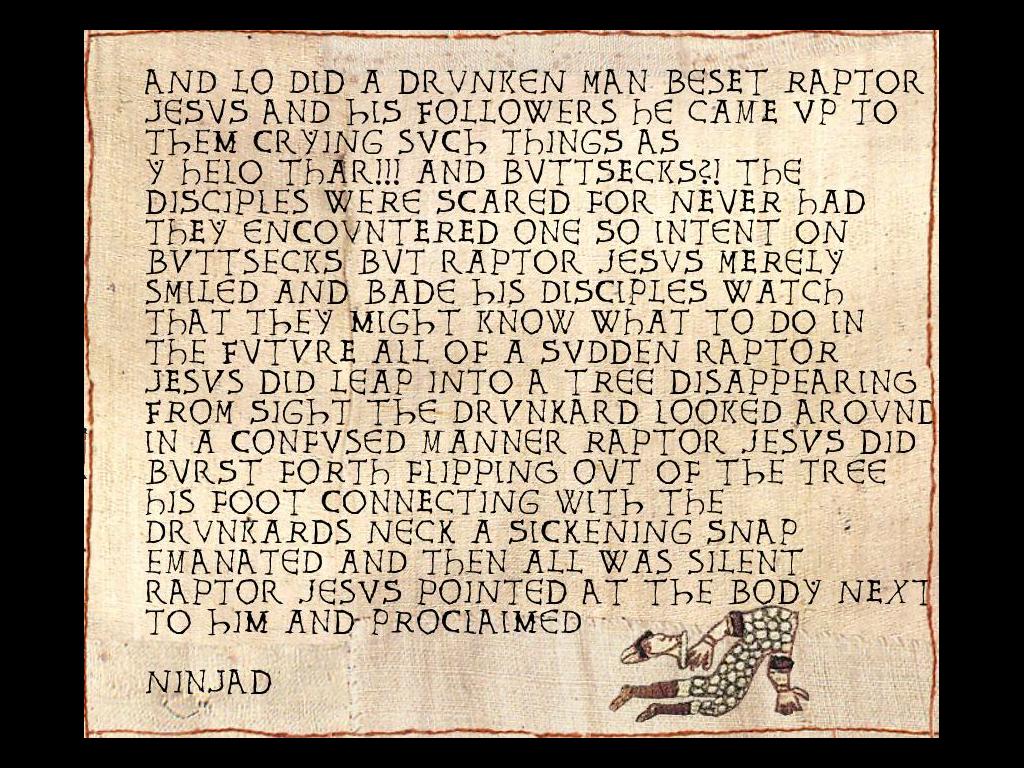 AND LO DID A DRVNKEN MAN BESET RAPTOR
JESVS AND hIS FOLLOWERS hE CAME VP TO
ThEM CRYING SVCh ThINGS AS
Y hELO ThAR!!! AND BVTTSECKS?! ThE
DISCIPLES WERE SCARED FOR NEVER hAD
ThEY ENCOVNTERED ONE SO INTENT ON
BVTTSECKS BVT RAPTOR JESVS MERELY
SMILED AND BADE hIS DISCIPLES WATCh
ThAT ThEY MIGhT KNOW WhAT TO DO IN
ThE FVTVRE ALL OF A SVDDEN RAPTOR
JESVS DID LEAP INTO A TREE DISAPPEARING
FROM SIGhT ThE DRVNKARD LOOKED AROVND
IN A CONFVSED MANNER RAPTOR JESVS DID
BVRST FORTh FLIPPING OVT OF ThE TREE
hIS FOOT CONNECTING WITh ThE
DRVNKARDS NECK A SICKENING SNAP
EMANATED AND ThEN ALL WAS SILENT
RAPTOR JESVS POINTED AT ThE BODY NEXT
TO hIM AND PROCLAIMED
NINJAD